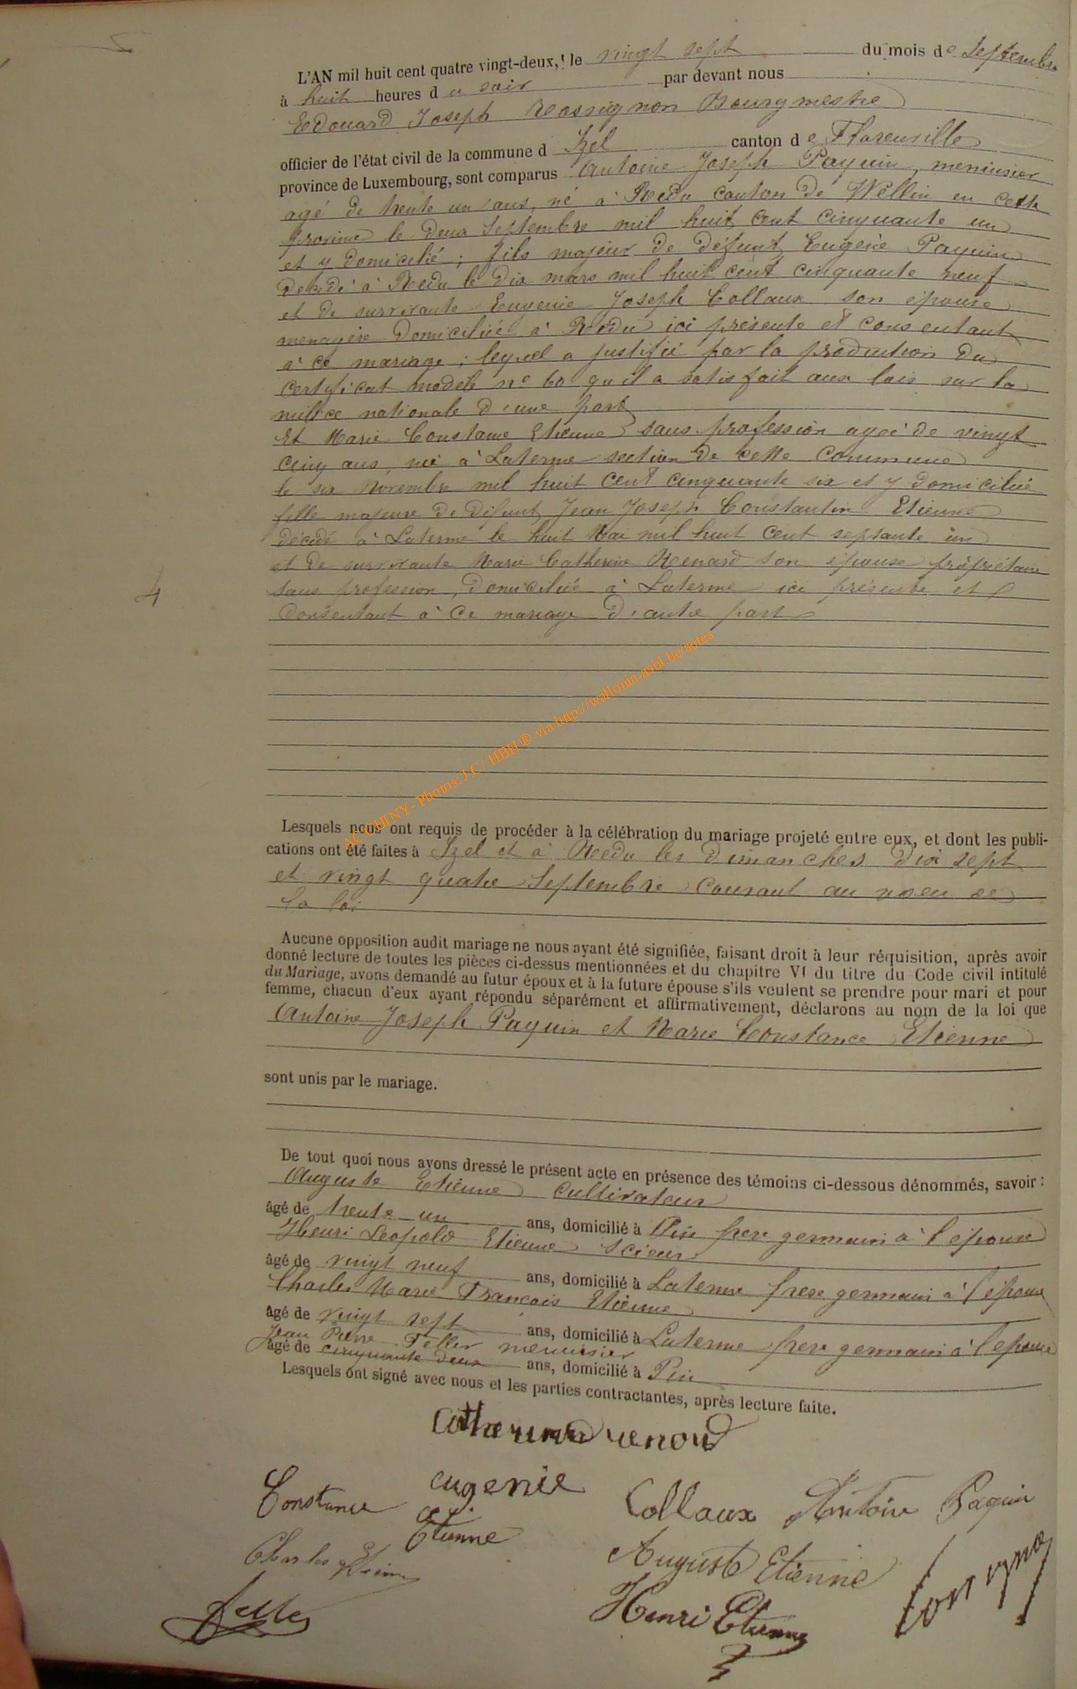 L'AN mil huit cent quatre vingt-deux, le vingt sept du mois de Septembre
à huit heures du soir par devant nous
Edouard Joseph Rossignon Bourgmestre
officier de l'état civil de la commune d Izel canton de Florenville
province de Luxembourg, sont comparus Antoine Joseph Paquin, menuisier
agé de trente un ans, né à Redu canton de Wellin en cette
province le deux Septembre mil huit cent cinquante un
et y domicilié ; fils majeur de défunt Eugène Paquin
décédé à Redu le dix mars mil huit cent cinquante neuf
et de survivante Eugenie Joseph Collaux son épouse
menagère domiciliée à Redu ici présente et consentant
à ce mariage ; lequel a justifié par la production du
certificat modèle n° 60 qu'il a satisfait aux lois sur la
milice nationale d'une part
Et Marie Constance Etienne sans profession agée de vingt
cinq ans, née à Laterme section de cette commune
le six Novembre mil huit cent cinquante six et y domiciliée
fille majeure de défunt Jean Joseph Constantin Etienne
décédé à Laterme le huit Mai mil huit cent septante un
et de survivante Marie Catherine Renard son épouse propriétaire
sans profession, domiciliée à Laterme ici présente et
consentant à ce mariage d'autre part
4
ACTHINY - Photos J.C / HBH © via http://wallonia-asbl.be/actes
Lesquels nous ont requis de procéder à la célébration du mariage projeté entre eux, et dont les publi-
cations ont été faites à Izel et à Redu les Dimanches dix sept
et vingt quatre Septembre courant au voeu de
la loi
Aucune opposition audit mariage ne nous ayant été signifiée, faisant droit à leur réquisition, après avoir
donné lecture de toutes les pièces ci-dessus mentionnées et du chapitre VI du titre du Code civil intitulé
du Mariage, avons demandé au futur époux et à la future épouse s'ils veulent se prendre pour mari et pour
femme, chacun d'eux ayant répondu séparément et affirmativement, déclarons au nom de la loi que
Antoine Joseph Paquin et Marie Constance Etienne
sont unis par le mariage.
De tout quoi nous avons dressé le présent acte en présence des témoins ci-dessous dénommés, savoir :
Auguste Etienne cultivateur
âgé de trente un ans, domicilié à Pin frère germain à l'épouse
Henri Leopold Etienne Scieur
âgé de vingt neuf ans, domicilié à Laterme frere germain à l'épouse
Charles Marie Francois Etienne
âgé de vingt sept ans, domicilié à Laterme frere germain à l'épouse
Jean Pierre Feller menuisier
âgé de cinquante deux ans, domicilié à Pin
Lesquels ont signé avec nous et les parties contractantes, après lecture faite.
Catherine renard
Constance Etienne eugenie Collaux Antoine Paquin
Charles Etienne Auguste Etienne
Feller Henri Etienne